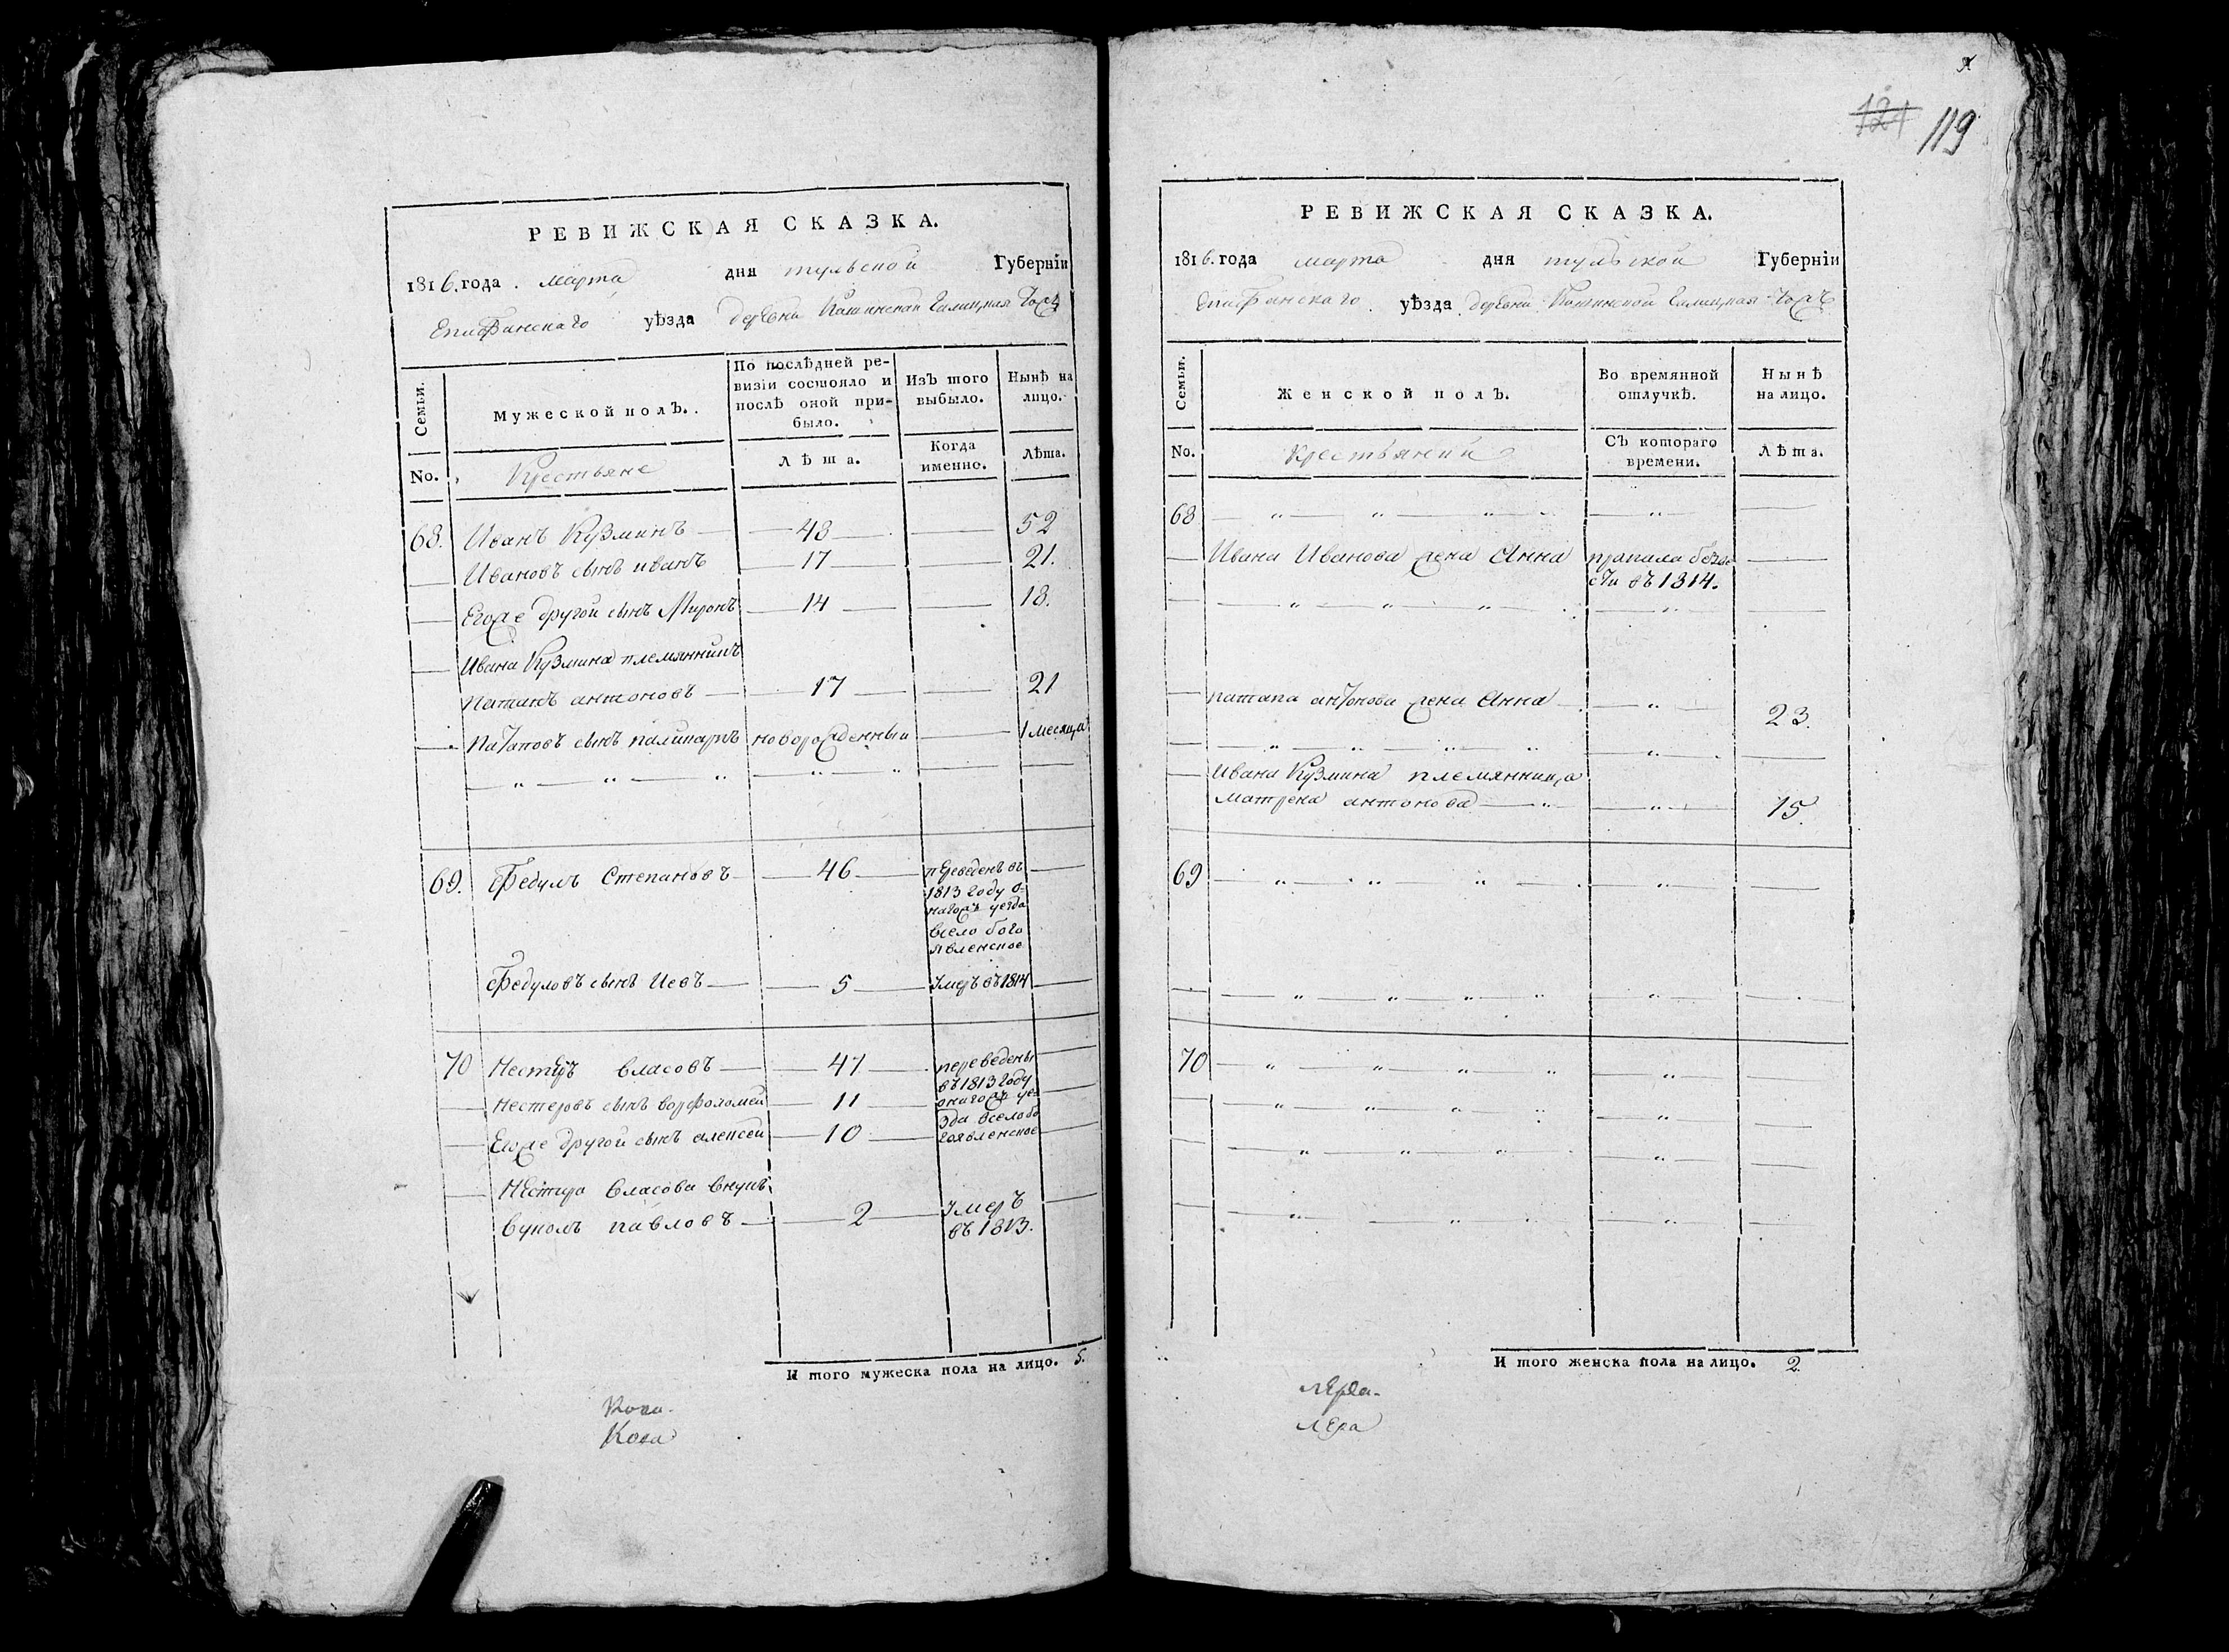 РЕВИЖСКАЯ СКАЗКА.
1816. года. марта дня тульской Губерніи
Епифанскаго уѣзда деревни
Семьи.
Мужеской полъ.
По послѣдней ре-
визіи состояло и
послѣ оной при-
было.
Изъ того
выбыло.
Нынѣ на
лицо.
No.
Крестьяне
Лѣта.
Когда
именно.
Лѣта.
68. Иванъ Кузминъ 48 52
Ивановъ сынъ иванъ 17 21.
Егоже другой сынъ Миронъ 14 18.
Ивана Кузмина племянникъ
Патапъ антоновъ 17 21
Патаповъ сынъ палинаръ новорожденный 1 месяца
69. Федулъ Степановъ 46 переведенъ въ
1813 году о-
нагожъ уезда
всело бого
явленское
Федуловъ сынъ Иевъ 5 Умеръ въ 1814
70 Нестеръ власовъ 47 переведены
въ 1813 году
Нестеровъ сынъ ворфоломей 11 онагожъ уе-
зда всело бо
Егоже другой сынъ алексей 10 гоявленское
Нестира власова внукъ
вуколъ павловъ 2 Умеръ
въ 1813.
И того мужеска пола на лицо. 5.
Коза
124 119
РЕВИЖСКАЯ СКАЗКА.
1816. года марта дня тульской Губерніи
Епифанскаго уѣзда деревни
Семьи.
Женской полъ.
Во времянной
отлучкѣ.
Нынѣ
на лицо.
No.
Съ котораго
времени.
Лѣта.
68
Ивана Иванова жена Анна прапала безве
сти въ 1814.
патапа антонова жена Анна 23.
Ивана Кузмина племянница
Матрена антонова 15.
69
70
И того женска пола на лицо. 2.